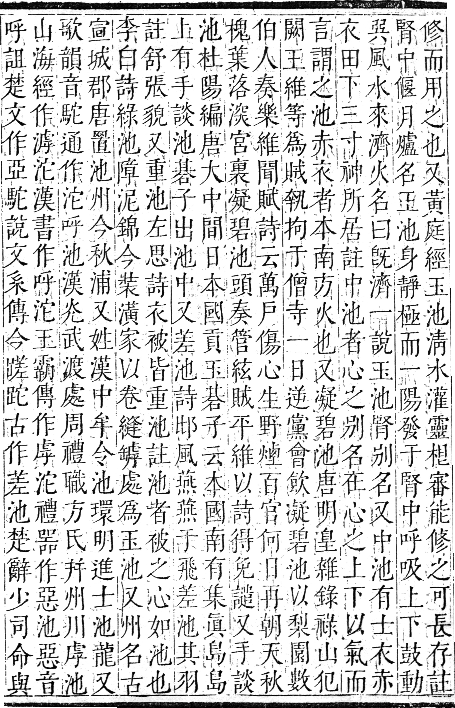 修而用之也又黃庭經玉池清水灌靈根審能修之可長存註
腎中偃月爐名玉池身靜極而一陽發于腎中呼吸上下鼓動
巽風水來濟火名曰旣濟一說玉池腎别名又中池有士衣赤
衣田下三寸神所居註中池者心之别名在心之上下以氣而
言謂之池赤衣者本南方火也又凝碧池唐明皇雜錄祿山犯
闕王維等爲賊執拘于僧寺一日逆黨會飲凝碧池以梨園數
伯人奏樂維聞賦詩云萬戸傷心生野煙百官何日再朝天秋
槐葉落深宫裏凝碧池頭奏管絃賊平維以詩得免譴又手談
池杜陽編唐大中間日本國貢玉碁子云本國南有集眞島島
上有手談池碁子出池中又差池詩邶風燕燕于飛差池其羽
註舒張貌又重池左思詩衣被皆重池註池者被之心如池也
李白詩綠池障泥錦今裝潢家以卷縫罅處爲玉池又州名古
宣城郡唐置池州今秋浦又姓漢中牟令池瑗明進士池龍又
歌韻音駝通作沱呼池漢光武渡處周禮職方氏幷州川虖池
山海經作滹沱漢書作呼沱王霸傳作虖沱禮器作惡池惡音
呼詛楚文作亞駝說文系傳今蹉跎古作差池楚辭少司命與